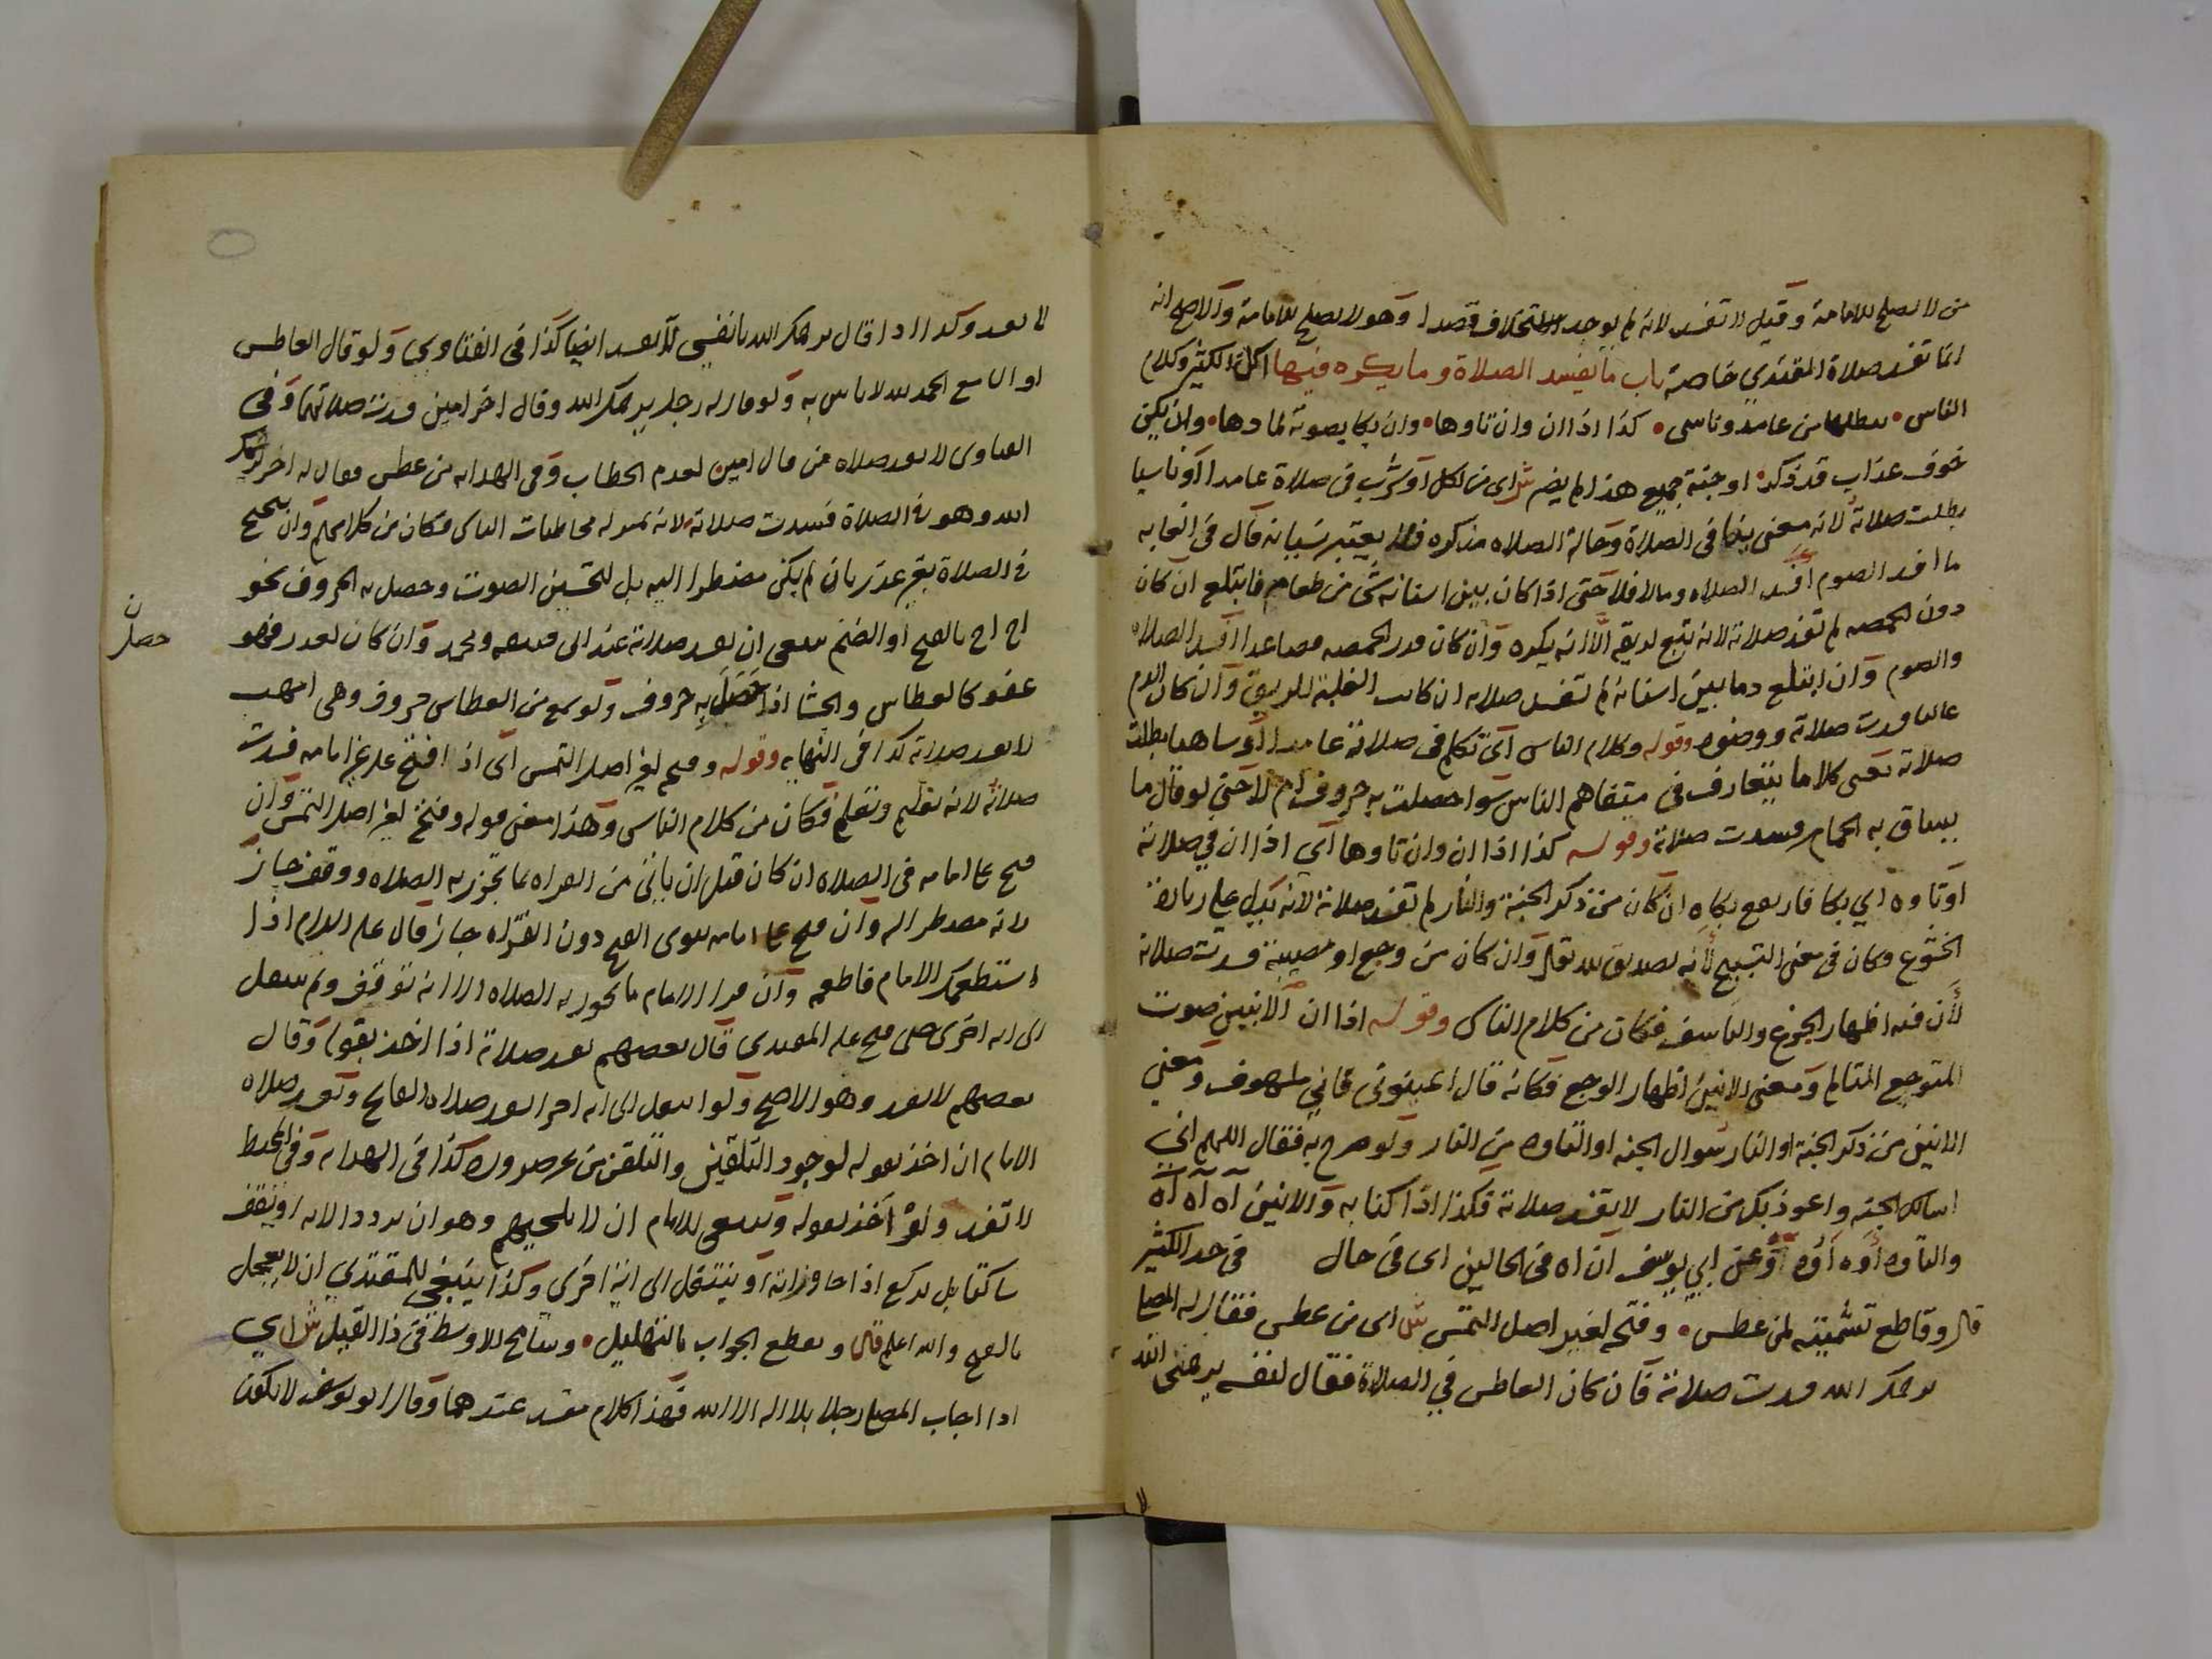 من لا يصلح للامامة وقيل لا تفسد لانه لم يوجد الاستخلاف قصدا وهو لا يصلح للامامة والاصح انه
انما تفسد صلاة المقتدي خاصة باب ما يفسد الصلاة وما يكره فيها اكل الكثير وكلام
الناس • يبطلها من عامد وناسي • كذا اذا ان وان تاوها • وان بكا بصوته لما دها • وان يكن
خوف عذاب قد ذكره او جنة جميع هذا لم يضر ش اى من اكل او شرب في صلاة عامدا او ناسيا
بطلت صلاته لانه معنى ينافي الصلاة وحالة الصلاه مذكره فلا يعتبر نسيانه قال في الغايه
ما افسد الصوم افسد الصلاه وما لا فلا حتى اذا كان بين اسنانه شى من طعام فابتلع ان كان
دون الحمصه لم تفسد صلاته لانه تبع لريقه الا انه يكره وان كان قدر الحمصه فصاعدا افسد الصلاه
والصوم وان ابتلع دما بين اسنانه لم تفسد صلاته ان كانت الغلبة للريق وان كان الدم
غالبا فسدت صلاته ووضوه وقوله وكلام الناس اى تكلم في صلاته عامدا او ساهيا بطلت
صلاته يعنى كلاما يتعارف في متفاهم الناس سوا حصلت به حروف ام لا حتى لو قال ما
يساق به الحمار فسدت صلاته وقوله كذا اذا ان وان تاوها اي اذا ان في صلاته
او تاوه اي بكا فارتفع بكاه ان كان من ذكر الجنة والنار لم تفسد صلاته لانه يدل على زيادة
الخشوع وكان في معنى التسبيح لانه تصديق لله تعالى وان كان من وجع او مصيبة فسدت صلاته
لان فيه اظهار الجزع والتاسف فكان من كلام الناس وقوله اذا ان الانين صوت
المتوجع المتالم ومعنى الانين اظهار الوجع فكانه قال اعينوني فاني ملهوف ومعنى
الانين من ذكر الجنة او النار سوال الجنه او التاوه من النار ولو صرح به فقال اللهم اني
اسالك الجنه واعوذ بك من النار لا تفسد صلاته فكذا اذا كنا به والانين آه آه آه
والتاوه أوه أوه أو وعن ابي يوسف ان اه في الحالين اى في حال في حد الكثير
قال وقاطع تشميته لمن عطس • وفتحه لغير اصل الملتمس ش اى من عطس فقال له المصلي
يرحمك الله فسدت صلاته فان كان العاطس في الصلاة فقال لنفسه يرحمني الله
لا تفسد وكذا اذا قال يرحمك الله يا نفسي لا تفسد ايضا كذا في الفتاوي ولو قال العاطس
او السامع الحمد لله لا باس به ولو قال له رجل يرحمك الله وقال اخر امين فسدت صلاتهما وفي
الفتاوى لا تفسد صلاه من قال امين لعدم الخطاب وفى الهدايه من عطس فقال له اخر يرحمك
الله وهو في الصلاة فسدت صلاته لانه بمنزله مخاطبات الناس فكان من كلامهم وان تنحنح
في الصلاة بغير عذر بان لم يكن مضطرا اليه بل لتحسين الصوت وحصل به الحروف نحو
اح اح بالفتح او الضم ينبغى ان تفسد صلاته عند ابى حنيفه ومحمد وان كان لعذر فهو
عفو كالعطاس والجشا اذا حصل به حروف ولو سمع من العطاس حروف وهى امهب
حصل ن
لا تفسد صلاته كذا فى النهايه وقوله وفتحه لغير اصل الملتمس اى اذا فتح على غير امامه فسدت
صلاته لانه تعليم وتعلم فكان من كلام الناس وهذا معنى قوله وفتحه لغير اصل الملتمس وان
فتح على امامه في الصلاه ان كان قبل ان ياتى من القراه بما تجوز به الصلاه ووقف جاز
لانه مضطر اليه وان فتح على امامه ينوى الفتح دون القراه جاز قال عليه السلام اذا
استطعمكم الامام فاطعمه وان قرا الامام ما تجوز به الصلاه الا انه توقف ولم ينتقل
الى ايه اخرى حتى فتح عليه المقتدى قال بعضهم تفسد صلاته اذا اخذ بقوله وقال
بعضهم لا تفسد وهو الاصح ولو انتقل الى ايه اخرى تفسد صلاة الفاتح وتفسد صلاه
الامام ان اخذ بقوله لوجود التلقين والتلقن من غير ضروره كذا في الهدايه وفي المحيط
لا تفسد ولو اخذ بقوله وينبغى للامام ان لا يلجيهم وهو ان يردد الايه او يقف
ساكتا بل يركع اذا جا اوانه او ينتقل الى اية اخرى وكذا ينبغي للمقتدي ان لا يعجل
بالفتح والله اعلم قال ويقطع الجواب بالتهليل • وسامح الاوسط في ذا القيل ش اي
اذا اجاب المصلي رجلا بلا اله الا الله فهذا كلام مفسد عندهما وقال ابو يوسف لا يكون